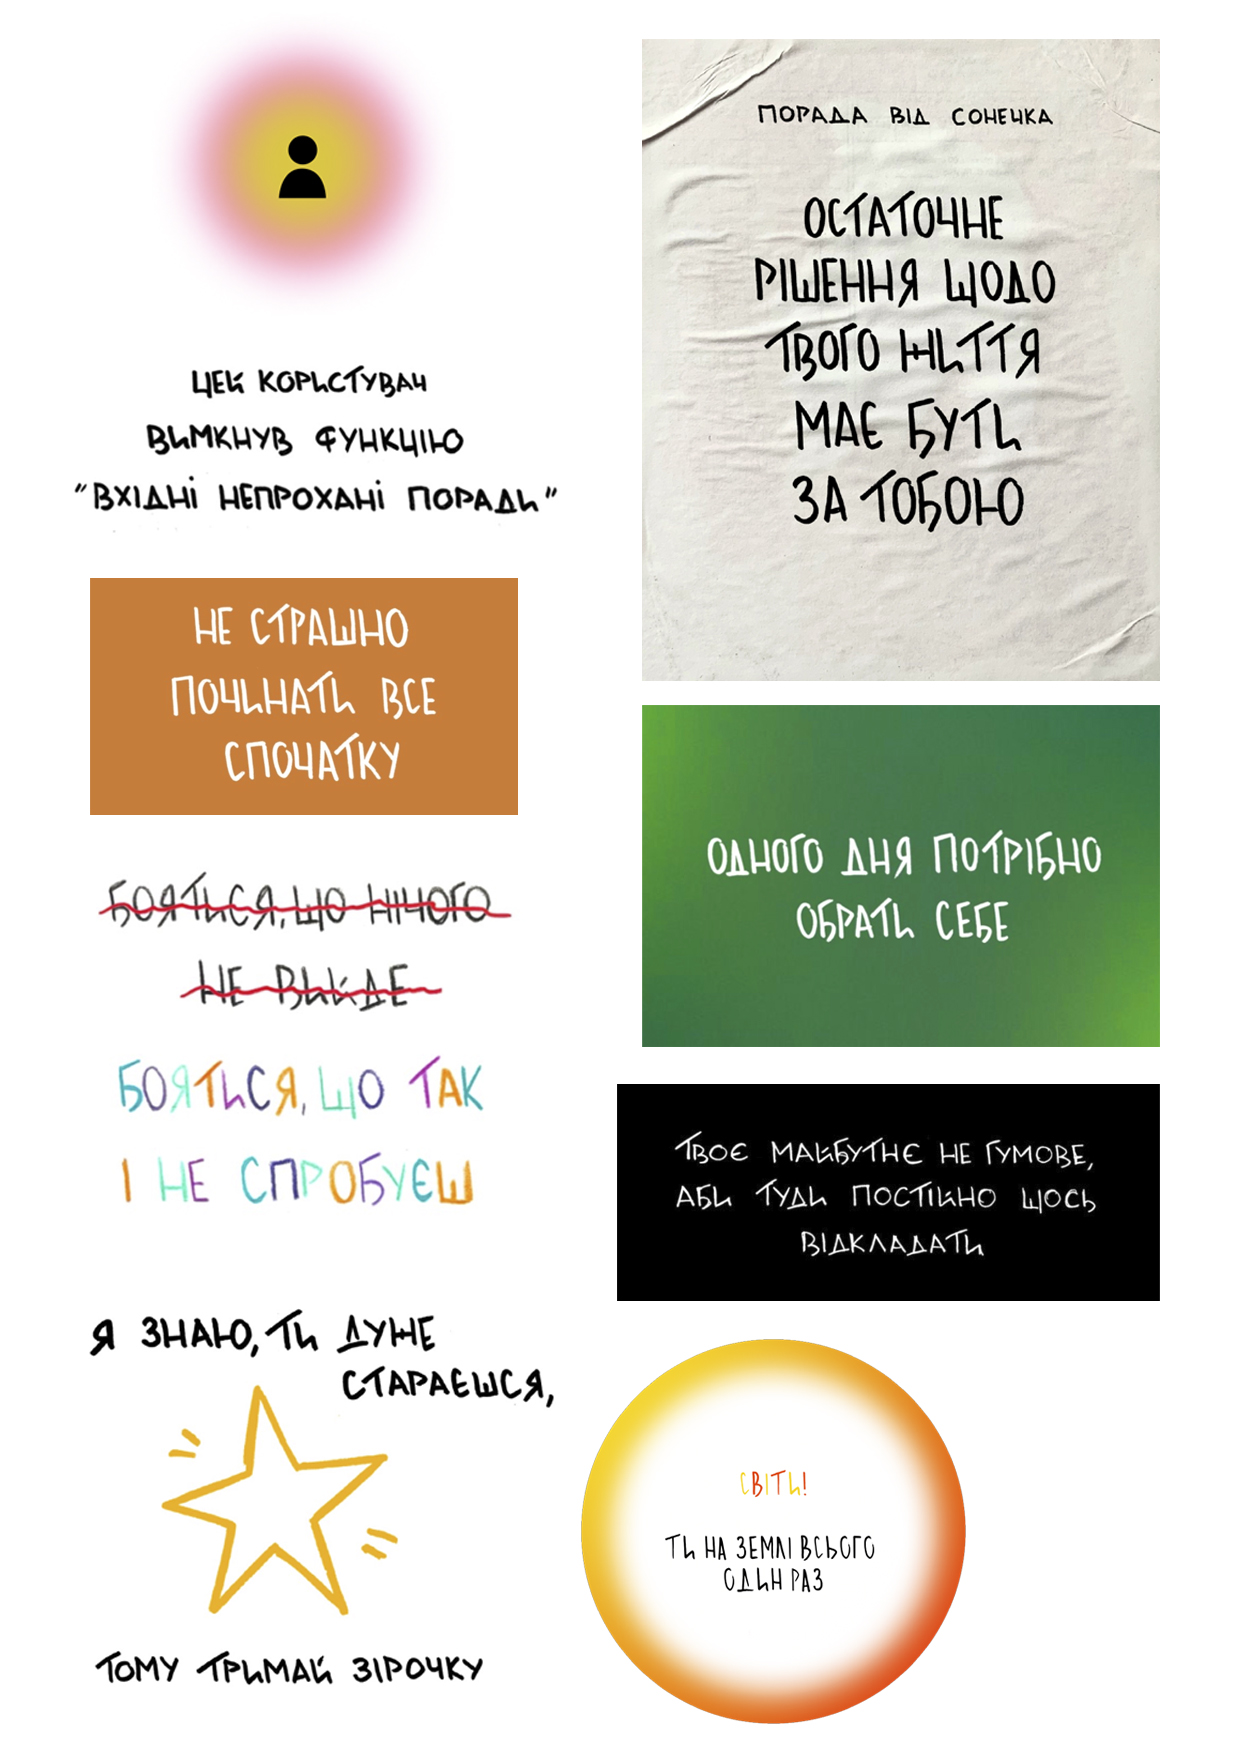 ЦЕЙ КОРИСТУВАЧ
ВИМКНУВ ФУНКЦІЮ
"ВХІДНІ НЕПРОХАНІ ПОРАДИ"
НЕ СТРАШНО
ПОЧИНАТИ ВСЕ
СПОЧАТКУ
БОЯТЬСЯ, ЩО НІЧОГО
НЕ ВИЙДЕ
БОЯТЬСЯ, ЩО ТАК
І НЕ СПРОБУЄШ
Я ЗНАЮ, ТИ ДУЖЕ
СТАРАЄШСЯ,
ТОМУ ТРИМАЙ ЗІРОЧКУ
ПОРАДА ВІД СОНЕЧКА
ОСТАТОЧНЕ
РІШЕННЯ ЩОДО
ТВОГО ЖИТТЯ
МАЄ БУТЬ
ЗА ТОБОЮ
ОДНОГО ДНЯ ПОТРІБНО
ОБРАТЬ СЕБЕ
ТВОЄ МАЙБУТНЄ НЕ ГУМОВЕ,
АБИ ТУДИ ПОСТІЙНО ЩОСЬ
ВІДКЛАДАТИ
СВІТИ!
ТИ НА ЗЕМЛІ ВСЬОГО
ОДИН РАЗ